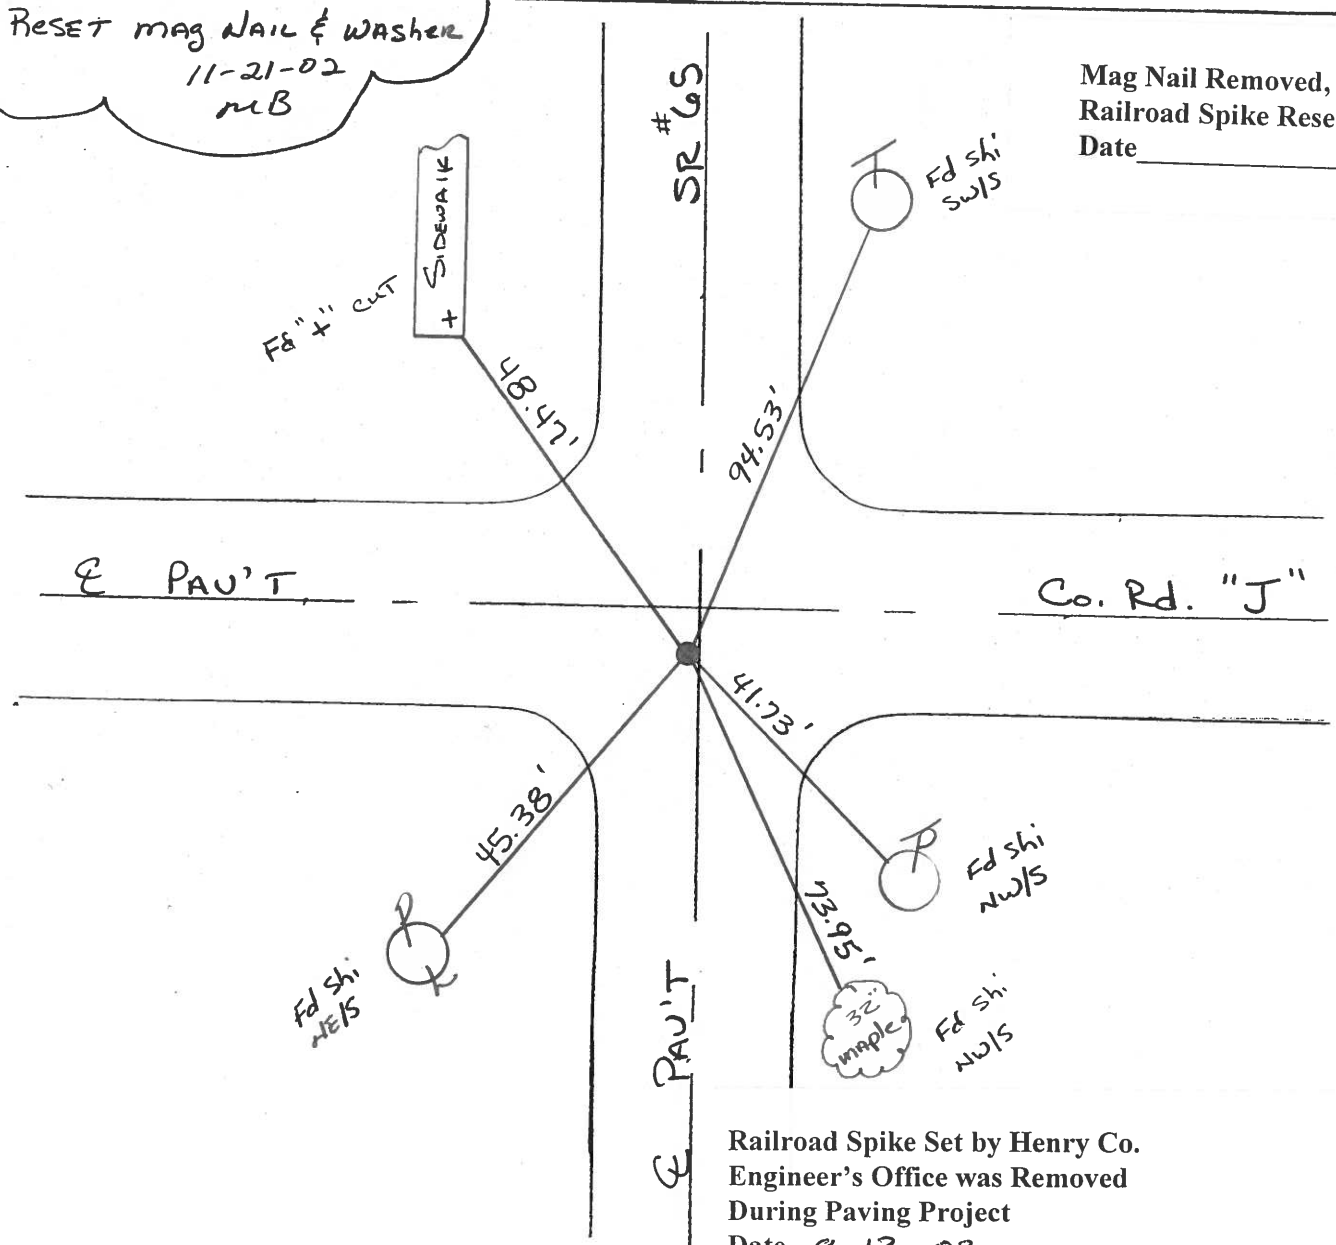 RESET mag NAIL & WASHER
11-21-02
MB
Mag Nail Removed,
Railroad Spike Rese
Date
SR #65
T
Fd Shi
SW/S
SIDEWALK
+
Fd "+" CUT
48.47'
94.53'
℄ PAV'T
Co. Rd. "J"
41.73'
45.38'
73.95'
P
Fd Shi
NW/S
P
L
Fd Shi
NE/S
32"
maple
Fd Shi
NW/S
℄ PAV'T
Railroad Spike Set by Henry Co.
Engineer's Office was Removed
During Paving Project
Date